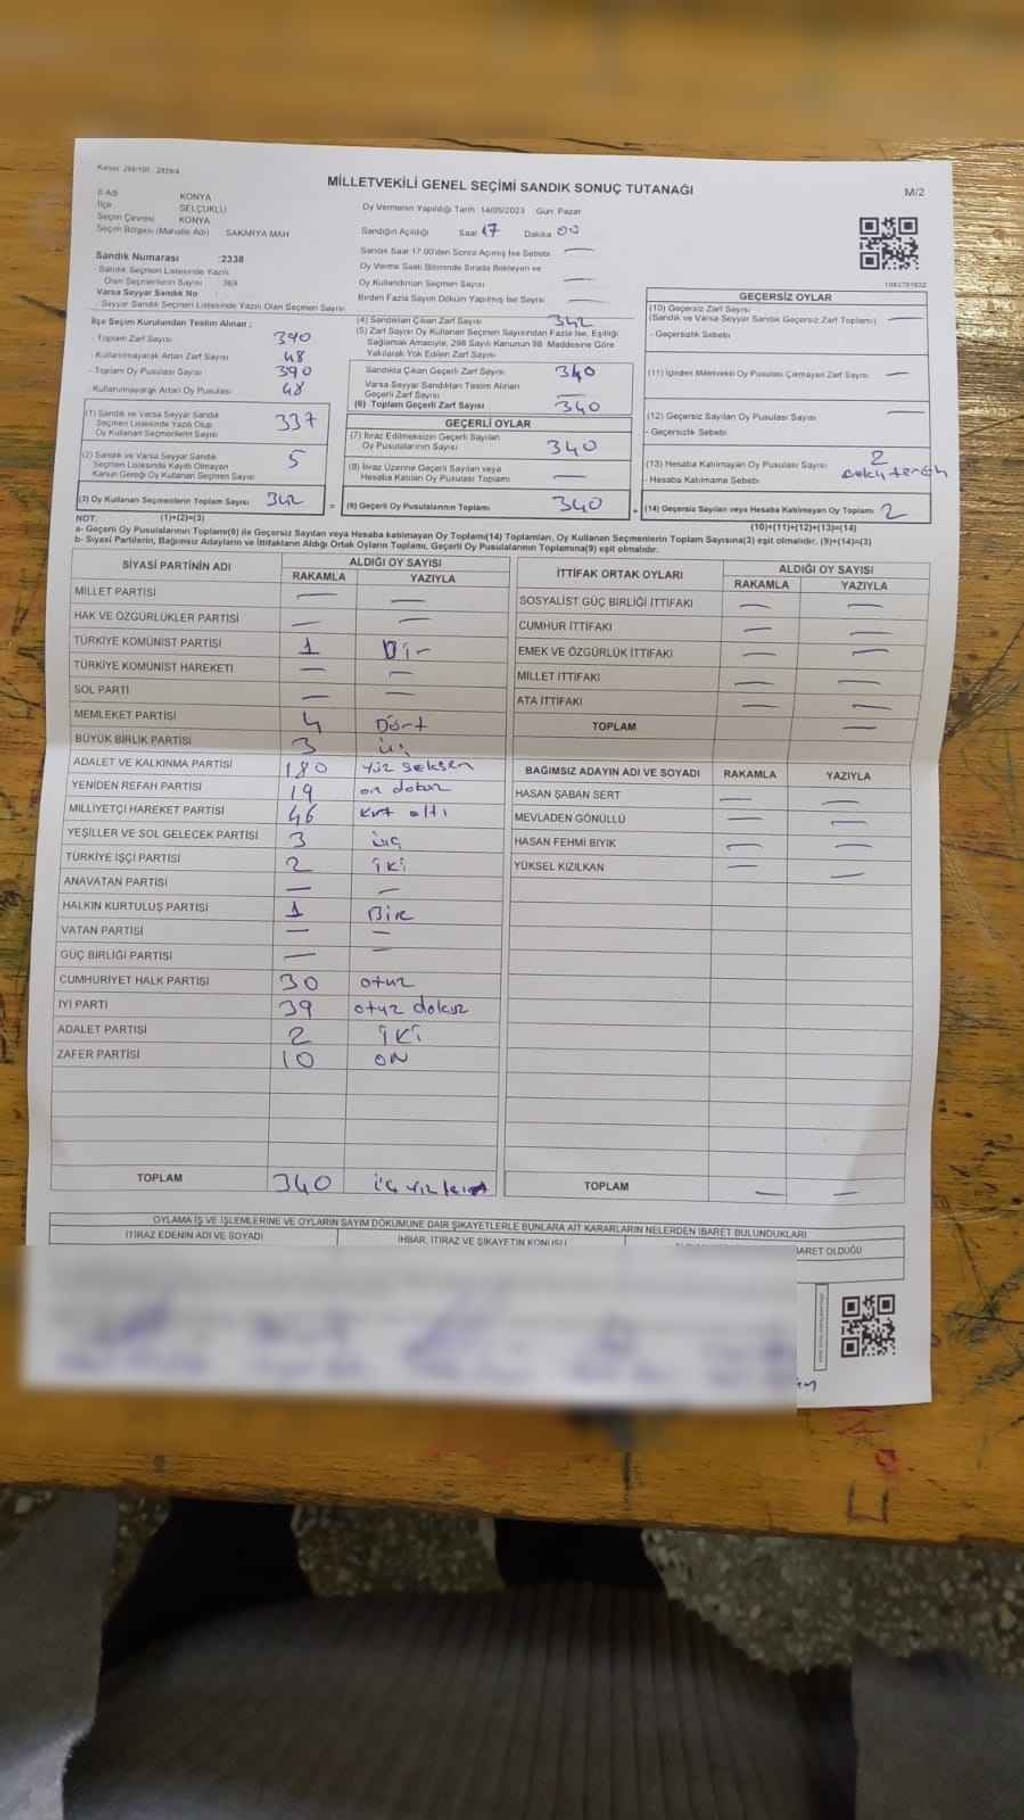 MİLLETVEKİLİ GENEL SEÇİMİ SANDIK SONUÇ TUTANAĞI
M/2
İl Adı KONYA
İlçe SELÇUKLU
Seçim Çevresi KONYA
Seçim Bölgesi (Mahalle Adı) SAKARYA MAH
Sandık Numarası :2338
Sandık Seçmen Listesinde Yazılı
Olan Seçmenlerin Sayısı
Varsa Seyyar Sandık No
Seyyar Sandık Seçmen Listesinde Yazılı Olan Seçmen Sayısı
Oy Vermenin Yapıldığı Tarih 14/05/2023 Gün: Pazar
Sandığın Açıldığı Saat 17 Dakika ON
Sandık Saat 17.00'den Sonra Açılmış İse Sebebi —
Oy Verme Saati Bitiminde Sırada Bekleyen ve
Oy Kullandırılan Seçmen Sayısı —
Birden Fazla Sayım Döküm Yapılmış İse Sayısı —
İlçe Seçim Kurulundan Teslim Alınan :
- Toplam Zarf Sayısı 390
- Kullanılmayarak Artan Zarf Sayısı 48
- Toplam Oy Pusulası Sayısı 390
- Kullanılmayarak Artan Oy Pusulası 48
(1) Sandık ve Varsa Seyyar Sandık
Seçmen Listesinde Yazılı Olup
Oy Kullanan Seçmenlerin Sayısı 337
(2) Sandık ve Varsa Seyyar Sandık
Seçmen Listesinde Kayıtlı Olmayan
Kanun Gereği Oy Kullanan Seçmen Sayısı 5
(3) Oy Kullanan Seçmenlerin Toplam Sayısı 342
(1)+(2)=(3)
(4) Sandıktan Çıkan Zarf Sayısı 342
(5) Zarf Sayısı Oy Kullanan Seçmen Sayısından Fazla İse, Eşitliği
Sağlamak Amacıyla, 298 Sayılı Kanunun 98. Maddesine Göre
Yakılarak Yok Edilen Zarf Sayısı
Sandıkta Çıkan Geçerli Zarf Sayısı 340
Varsa Seyyar Sandıktan Teslim Alınan
Geçerli Zarf Sayısı —
(6) Toplam Geçerli Zarf Sayısı 340
GEÇERLİ OYLAR
(7) İtiraz Edilmeksizin Geçerli Sayılan
Oy Pusulalarının Sayısı 340
(8) İtiraz Üzerine Geçerli Sayılan veya
Hesaba Katılan Oy Pusulası Toplamı —
(9) Geçerli Oy Pusulalarının Toplamı 340
GEÇERSİZ OYLAR
(10) Geçersiz Zarf Sayısı
(Sandık ve Varsa Seyyar Sandık Geçersiz Zarf Toplamı) —
- Geçersizlik Sebebi
(11) İçinden Milletvekili Oy Pusulası Çıkmayan Zarf Sayısı —
(12) Geçersiz Sayılan Oy Pusulası Sayısı —
- Geçersizlik Sebebi
(13) Hesaba Katılmayan Oy Pusulası Sayısı 2
- Hesaba Katılmama Sebebi
(14) Geçersiz Sayılan veya Hesaba Katılmayan Oy Toplamı 2
(10)+(11)+(12)+(13)=(14)
NOT:
a- Geçerli Oy Pusulalarının Toplamı(9) ile Geçersiz Sayılan veya Hesaba katılmayan Oy Toplamı(14) Toplamları, Oy Kullanan Seçmenlerin Toplam Sayısına(3) eşit olmalıdır. (9)+(14)=(3)
b- Siyasi Partilerin, Bağımsız Adayların ve İttifakların Aldığı Ortak Oyların Toplamı, Geçerli Oy Pusulalarının Toplamına(9) eşit olmalıdır.
SİYASİ PARTİNİN ADI ALDIĞI OY SAYISI
RAKAMLA YAZIYLA
MİLLET PARTİSİ — —
HAK VE ÖZGÜRLÜKLER PARTİSİ — —
TÜRKİYE KOMÜNİST PARTİSİ 1 Bir
TÜRKİYE KOMÜNİST HAREKETİ — —
SOL PARTİ — —
MEMLEKET PARTİSİ 4 Dört
BÜYÜK BİRLİK PARTİSİ 3 üç
ADALET VE KALKINMA PARTİSİ 180 Yüz seksen
YENİDEN REFAH PARTİSİ 19 on dokuz
MİLLİYETÇİ HAREKET PARTİSİ 46 kırk altı
YEŞİLLER VE SOL GELECEK PARTİSİ 3 üç
TÜRKİYE İŞÇİ PARTİSİ 2 iki
ANAVATAN PARTİSİ — —
HALKIN KURTULUŞ PARTİSİ 1 Bir
VATAN PARTİSİ — —
GÜÇ BİRLİĞİ PARTİSİ — —
CUMHURİYET HALK PARTİSİ 30 otuz
İYİ PARTİ 39 otuz dokuz
ADALET PARTİSİ 2 iki
ZAFER PARTİSİ 10 ON
TOPLAM 340 üç yüz kırk
İTTİFAK ORTAK OYLARI ALDIĞI OY SAYISI
RAKAMLA YAZIYLA
SOSYALİST GÜÇ BİRLİĞİ İTTİFAKI — —
CUMHUR İTTİFAKI — —
EMEK VE ÖZGÜRLÜK İTTİFAKI — —
MİLLET İTTİFAKI — —
ATA İTTİFAKI — —
TOPLAM —
BAĞIMSIZ ADAYIN ADI VE SOYADI RAKAMLA YAZIYLA
HASAN ŞABAN SERT — —
MEVLADEN GÖNÜLLÜ — —
HASAN FEHMİ BIYIK — —
YÜKSEL KIZILKAN — —
TOPLAM — —
OYLAMA İŞ VE İŞLEMLERİNE VE OYLARIN SAYIM DÖKÜMÜNE DAİR ŞİKAYETLERLE BUNLARA AİT KARARLARIN NELERDEN İBARET BULUNDUKLARI
İTİRAZ EDENİN ADI VE SOYADI
İHBAR, İTİRAZ VE ŞİKAYETİN KONUSU
BARET OLDUĞU